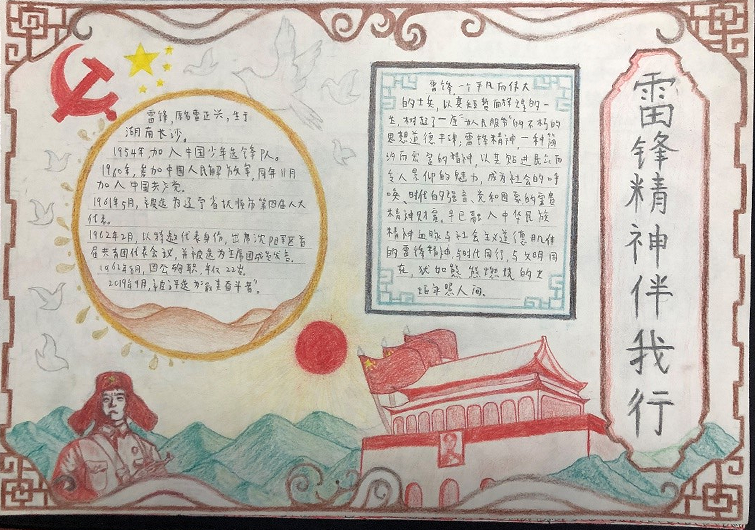 雷锋精神伴我行
雷锋,原名雷正兴,生于
湖南长沙。
1954年,加入中国少年先锋队。
1960年,参加中国人民解放军,同年11月
加入中国共产党。
1961年5月,被选为辽宁省抚顺市第四届人大
代表。
1962年2月,以特邀代表身份,出席沈阳军区首
届共青团代表会议,并被选为主席团成员发言。
1962年8月,因公殉职,年仅22岁。
2019年9月,被评选为“最美奋斗者”。
雷锋,一个平凡而伟大
的士兵,以其短暂而辉煌的一
生,树起了一座“为人民服务”的不朽的
思想道德丰碑,雷锋精神一种简
约而宏富的精神,以其贴近民众而
令人景仰的魅力,成为社会的呼
唤、时代的强音、党和国家的宝贵
精神财富,早已融入中华民族
精神血脉与社会主义道德肌体
的雷锋精神与时代同行,与文明同
在,犹如熊熊燃烧的火
炬年照人间。